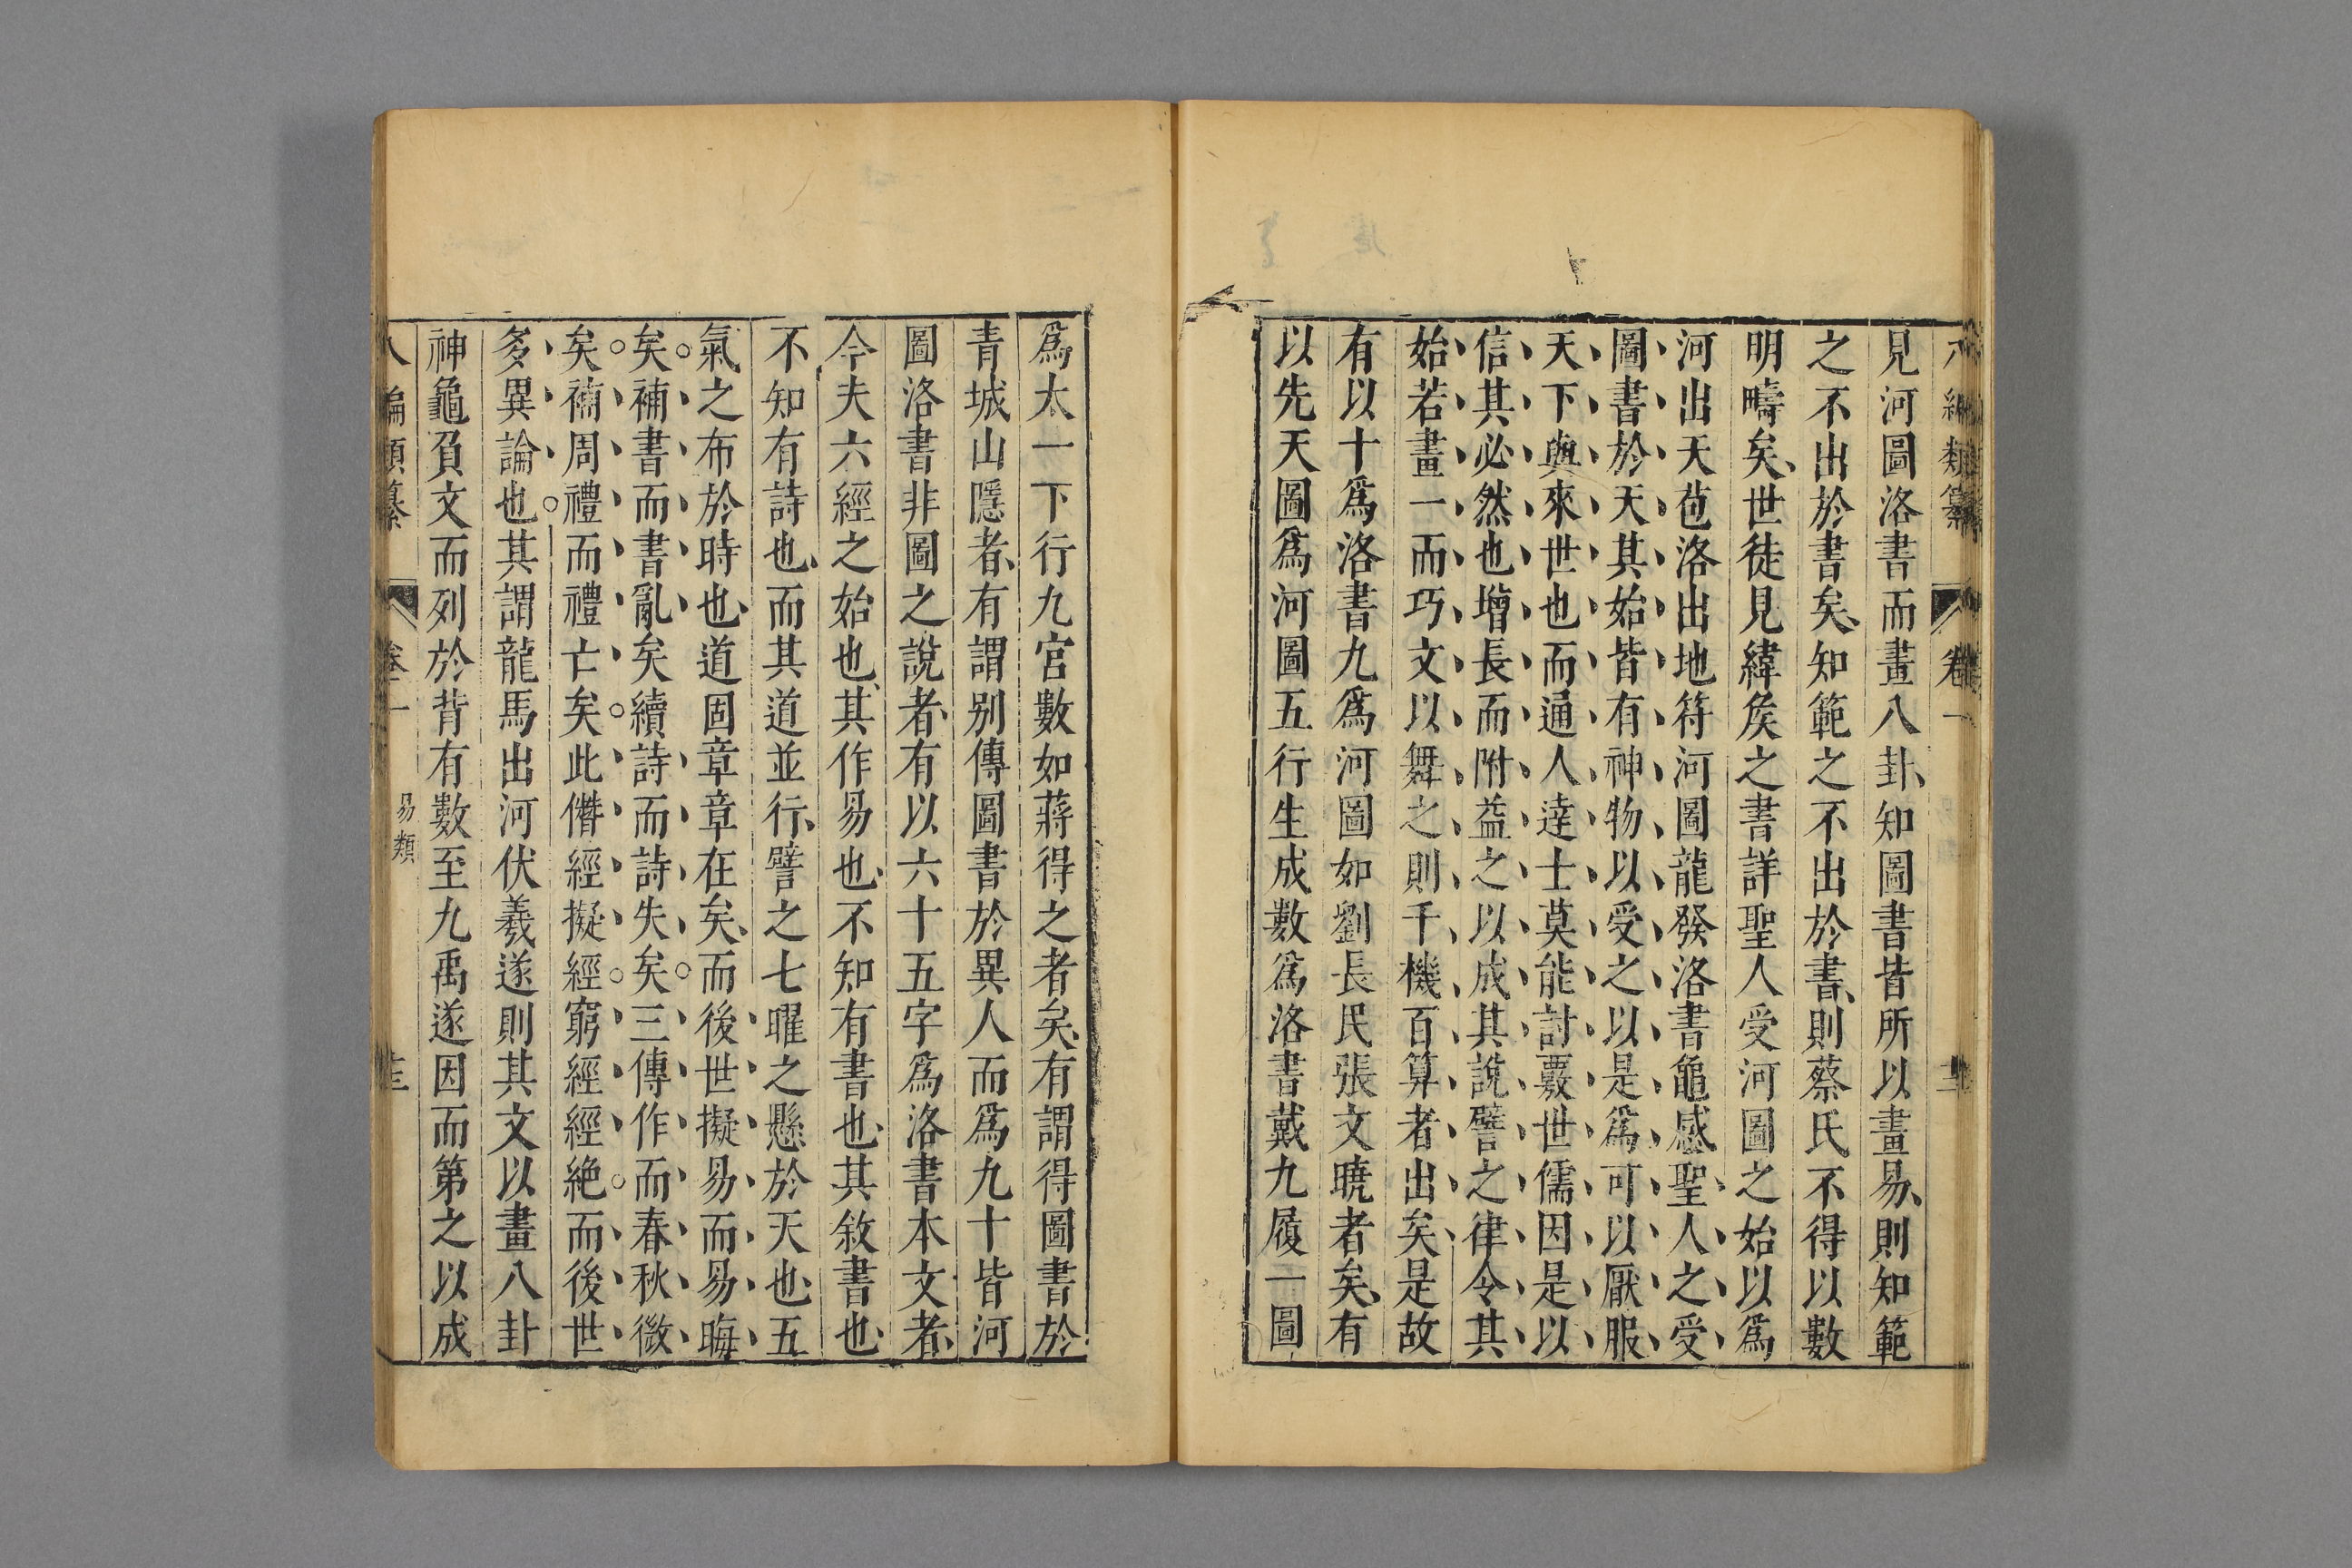 八編類纂 卷一
見河圖洛書而畫八卦知圖書皆所以畫易則知範
之不出於書矣知範之不出於書則蔡氏不得以數
明疇矣世徒見緯矦之書詳聖人受河圖之始以爲
河出天苞洛出地符河圖龍發洛書龜感聖人之受
圖書於天其始皆有神物以受之以是爲可以厭服
天下與來世也而通人達士莫能討覈世儒因是以
信其必然也增長而附益之以成其說譬之律令其
始若畫一而巧文以舞之則千機百算者出矣是故
有以十爲洛書九爲河圖如劉長民張文曉者矣有
以先天圖爲河圖五行生成數爲洛書戴九履一圖
爲太一下行九宮數如蔣得之者矣有謂得圖書於
青城山隱者有謂别傳圖書於異人而爲九十皆河
圖洛書非圖之說者有以六十五字爲洛書本文者
今夫六經之始也其作易也不知有書也其敘書也
不知有詩也而其道並行譬之七曜之懸於天也五
氣之布於時也道固章章在矣而後世擬易而易晦
矣補書而書亂矣續詩而詩失矣三傳作而春秋微
矣補周禮而禮亡矣此僭經擬經窮經經絶而後世
多異論也其謂龍馬出河伏羲遂則其文以畫八卦
神龜負文而列於背有數至九禹遂因而第之以成
八編類纂 卷一 易類